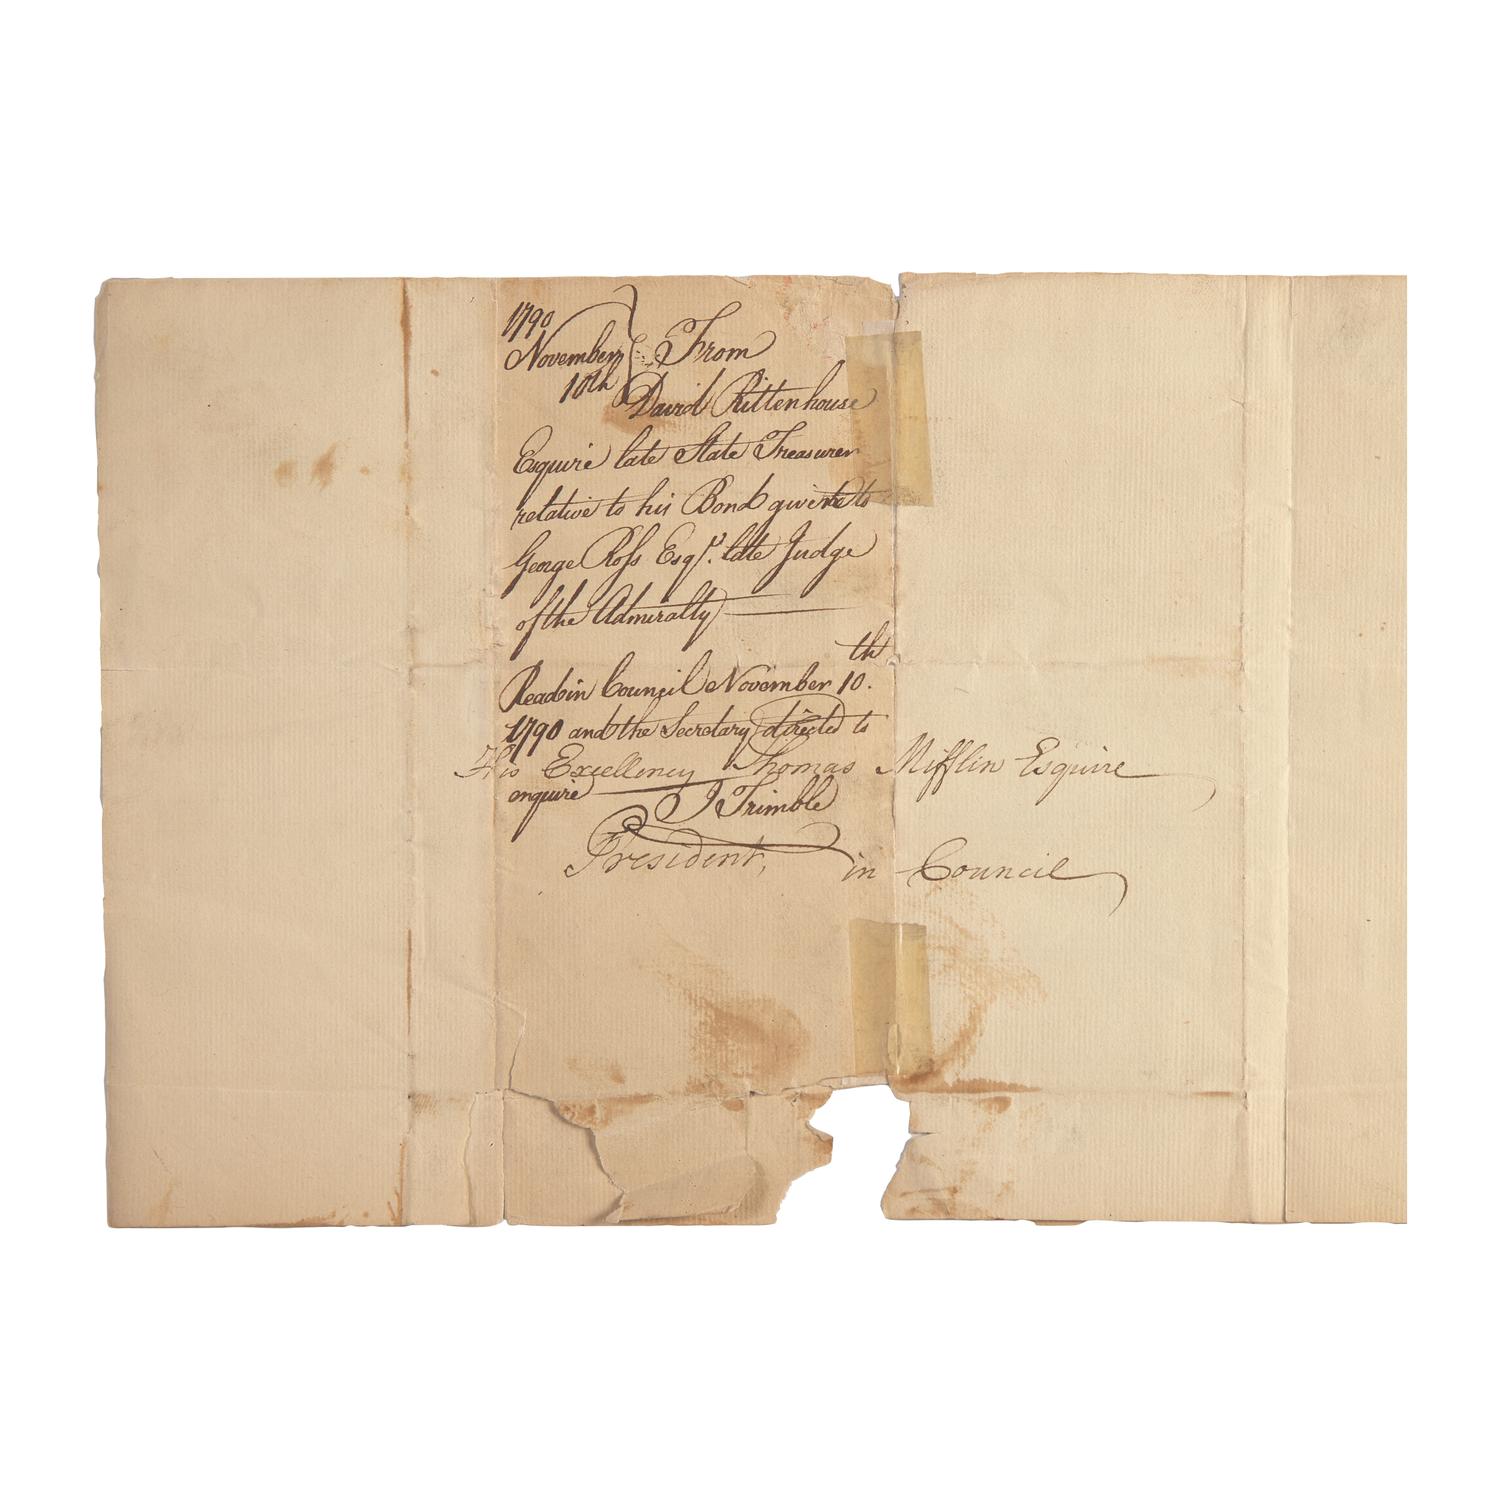 1790
November
10th
From
David Rittenhouse
Esquire late State Treasurer
relative to his Bond given to
George Ross Esqr. late Judge
of the Admiralty
Read in Council November 10th.
1790 and the Secretary directed to
enquire
J Trimble
His Excellency Thomas Mifflin Esquire
President, in Council